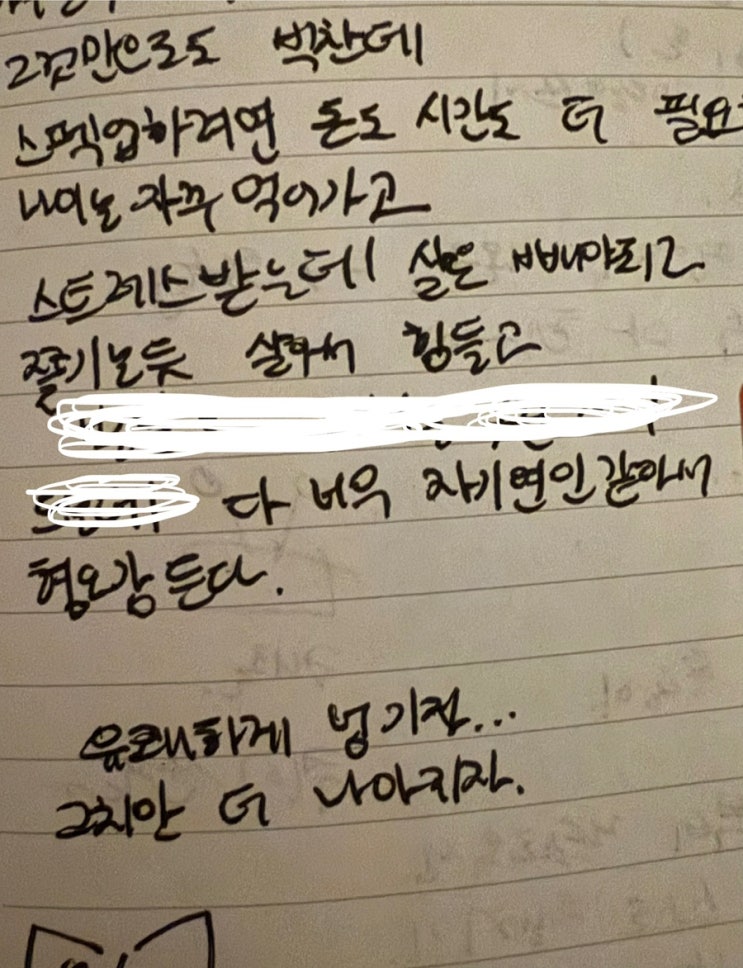 그것만으로도 벅찬데
스펙업하려면 돈도 시간도 더 필요
나이는 자꾸 먹어가고
스트레스받는데 살은 빼야되고
쫓기는듯 살아서 힘들고
다 너무 자기연민같아서
혐오감 든다.
유쾌하게 넘기자...
그치만 더 나아지자.